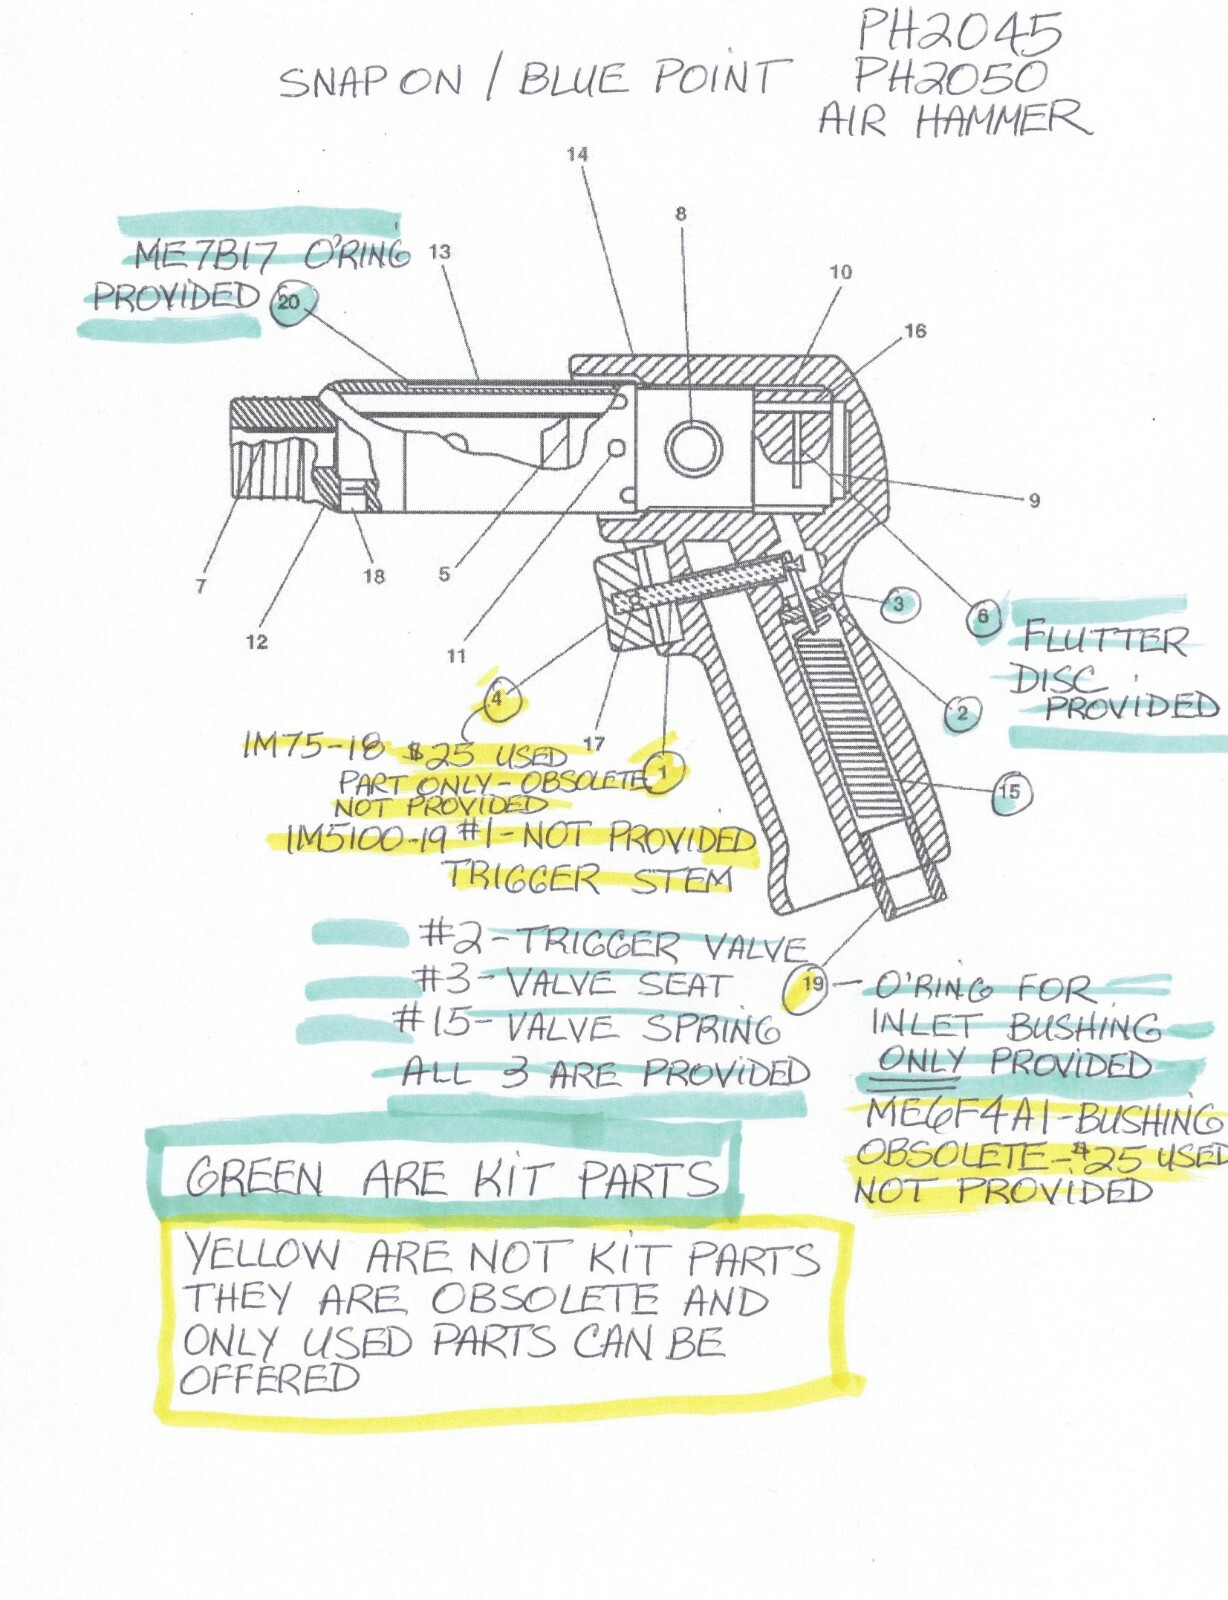 PH2045
SNAP ON / BLUE POINT PH2050
AIR HAMMER
14
8
ME7B17 O'RING
13
PROVIDED 20
10
16
9
7
18
5
3
6
12
11
FLUTTER
DISC
PROVIDED
4
2
17
IM75-18 $25 USED
PART ONLY - OBSOLETE
1
NOT PROVIDED
15
IM5100-19 #1 - NOT PROVIDED
TRIGGER STEM
#2 - TRIGGER VALVE
#3 - VALVE SEAT
#15 - VALVE SPRING
ALL 3 ARE PROVIDED
19 - O'RING FOR
INLET BUSHING
ONLY PROVIDED
ME6F4A1 - BUSHING
OBSOLETE - $25 USED
NOT PROVIDED
GREEN ARE KIT PARTS
YELLOW ARE NOT KIT PARTS
THEY ARE OBSOLETE AND
ONLY USED PARTS CAN BE
OFFERED